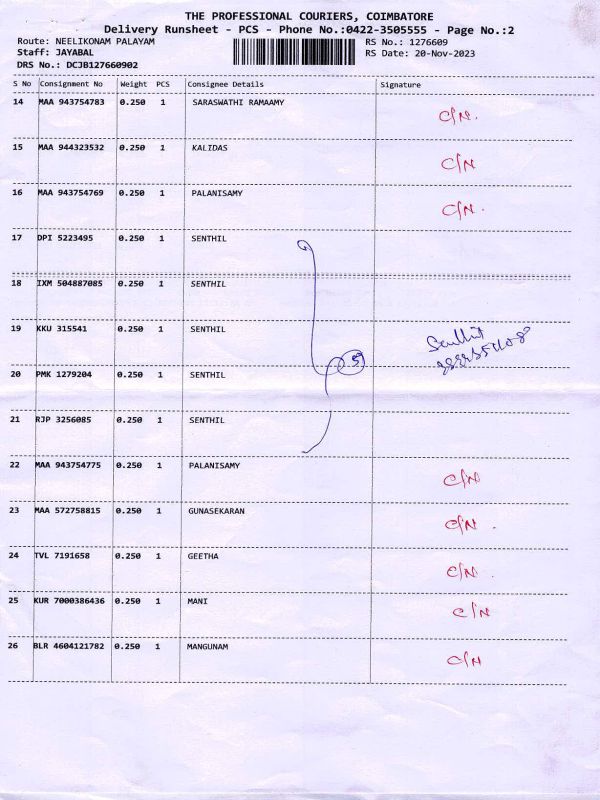 THE PROFESSIONAL COURIERS, COIMBATORE
Delivery Runsheet - PCS - Phone No.:0422-3505555 - Page No.:2
Route: NEELIKONAM PALAYAM RS No.: 1276609
Staff: JAYABAL RS Date: 20-Nov-2023
DRS No.: DCJB127660902
S No Consignment No Weight PCS Consignee Details Signature
14 MAA 943754783 0.250 1 SARASWATHI RAMAAMY C/N.
15 MAA 944323532 0.250 1 KALIDAS C/N
16 MAA 943754769 0.250 1 PALANISAMY C/N.
17 DPI 5223495 0.250 1 SENTHIL
18 IXM 504887085 0.250 1 SENTHIL
19 KKU 315541 0.250 1 SENTHIL Senthil
20 PMK 1279204 0.250 1 SENTHIL
21 RJP 3256085 0.250 1 SENTHIL
22 MAA 943754775 0.250 1 PALANISAMY C/N
23 MAA 572758815 0.250 1 GUNASEKARAN C/N.
24 TVL 7191658 0.250 1 GEETHA C/N.
25 KUR 7000386436 0.250 1 MANI C/N
26 BLR 4604121782 0.250 1 MANGUNAM C/N